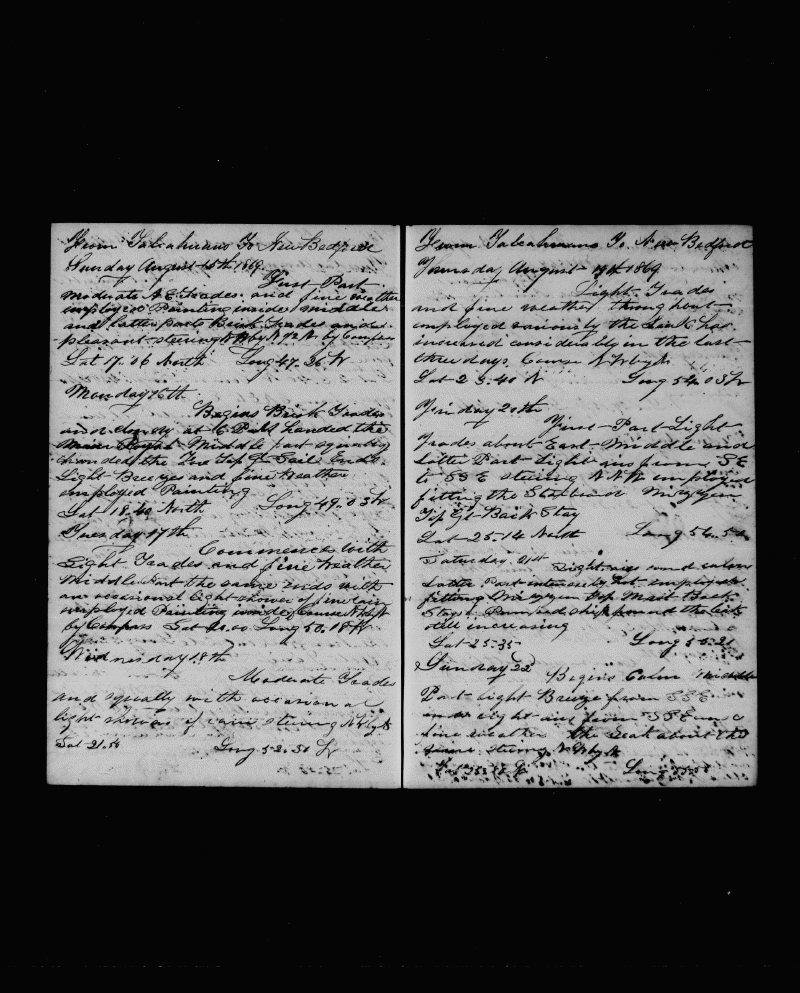 From Talcahuano To New Bedford
Sunday August 15th 1869
First Part
Moderate N.E. Trades and fine weather
employed Painting inside middle
and latter parts Brisk Trades and
pleasant steering by Compass
Lat 17.06 North Long 47.36 W
Monday 16th
Begins Brisk Trades
and cloudy at 6 P.M. handed the
Main Middle part squally
handed the Fore top Gt Sail Ends
Light Breezes and fine weather
employed Painting
Lat 18.40 North Long 49.03 W
Tuesday 17th
Commences with
Light Trades and fine weather
Middle Part the same ends with
an occasional light shower of fine rain
employed Painting inside Course
by Compass Lat 20.00 Long 50.18 W
Wednesday 18th
Moderate Trades
and squally with occasional
light showers of rain steering
Lat 21.54 Long 52.30 W
From Talcahuano To New Bedford
August 19th 1869
Light Trades
and fine weather throughout
employed variously the Leak has
increased considerably in the last
three days Course N W by N
Lat 23.40 N Long 54.03 W
Friday 20th
First Part Light
Trades about East Middle and
Latter Part light airs from SE
to SSE steering NNW employed
fitting the Starboard Mizzen
Top Gt Back Stay
Lat 25-14 North Long 54.
Saturday 21st Light airs and calms
Latter Part intensely hot employed
fitting Mizzen Top Mast Back
Stays Pumped ship the leak
still increasing
Lat 25-35 Long 55-21
Sunday 22d
Begins Calm Middle
Part light Breeze from SSE
ends light airs from SSE and
fine weather the Leak about the
same steering N W by N
Long 55-